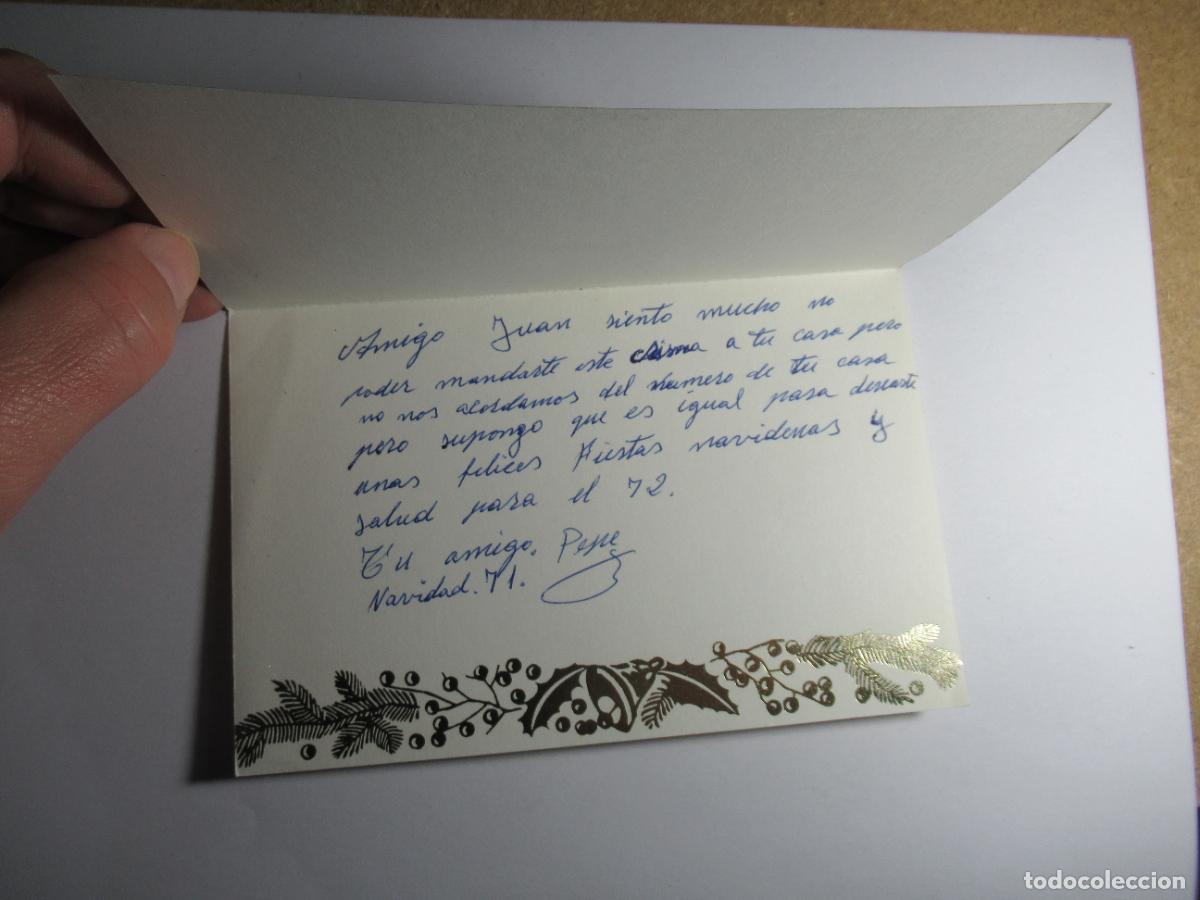 Amigo Juan siento mucho no
poder mandarte este crisma a tu casa pero
no nos acordamos del numero de tu casa
pero supongo que es igual para desearte
unas felices Fiestas navideñas y
salud para el 72.
Tu amigo. Pepe
Navidad. 71.
todocoleccion